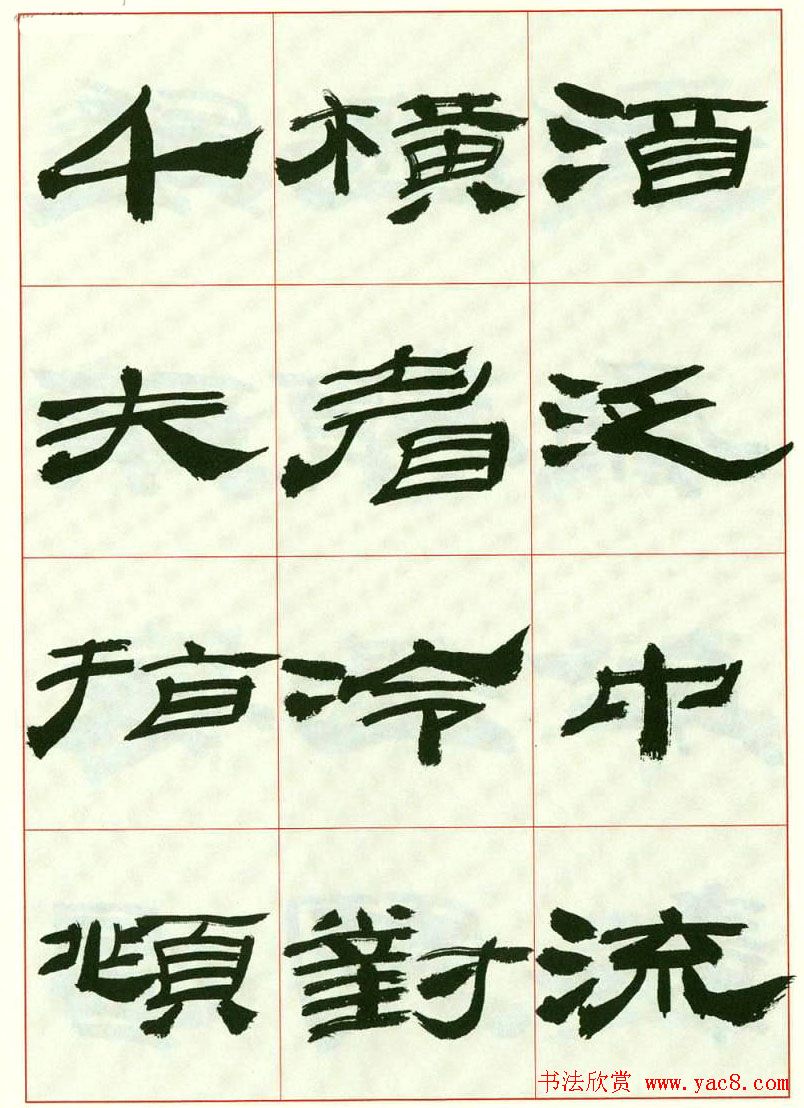 酒泛中流
橫眉冷對
千夫指頫
书法欣赏 www.yac8.com